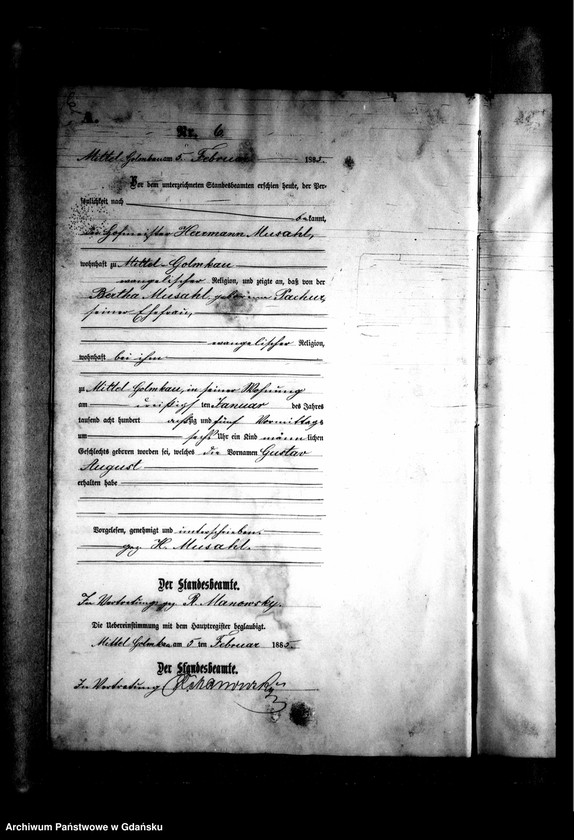 A.
Nr. 6
Mittel-Golmkau am 5. Februar 1885.
Vor dem unterzeichneten Standesbeamten erschien heute, der Per-
sönlichkeit nach
bekannt,
der Hofmeister Herrmann Musahl,
wohnhaft zu Mittel-Golmkau
evangelischer Religion, und zeigte an, daß von der
Bertha Musahl, geborenen Pachur,
seiner Ehefrau,
evangelischer Religion,
wohnhaft bei ihm
zu Mittel-Golmkau, in seiner Wohnung
am dreißigsten Januar des Jahres
tausend acht hundert achtzig und fünf Vormittags
um sechs Uhr ein Kind männlichen
Geschlechts geboren worden sei, welches die Vornamen Gustav
August
erhalten habe
Vorgelesen, genehmigt und unterschrieben.
gez. H. Musahl.
Der Standesbeamte.
In Vertretung gez. R. Manowsky.
Die Uebereinstimmung mit dem Hauptregister beglaubigt.
Mittel-Golmkau am 5 ten Februar 1885.
Der Standesbeamte.
In Vertretung R. Manowsky
Archiwum Państwowe w Gdańsku